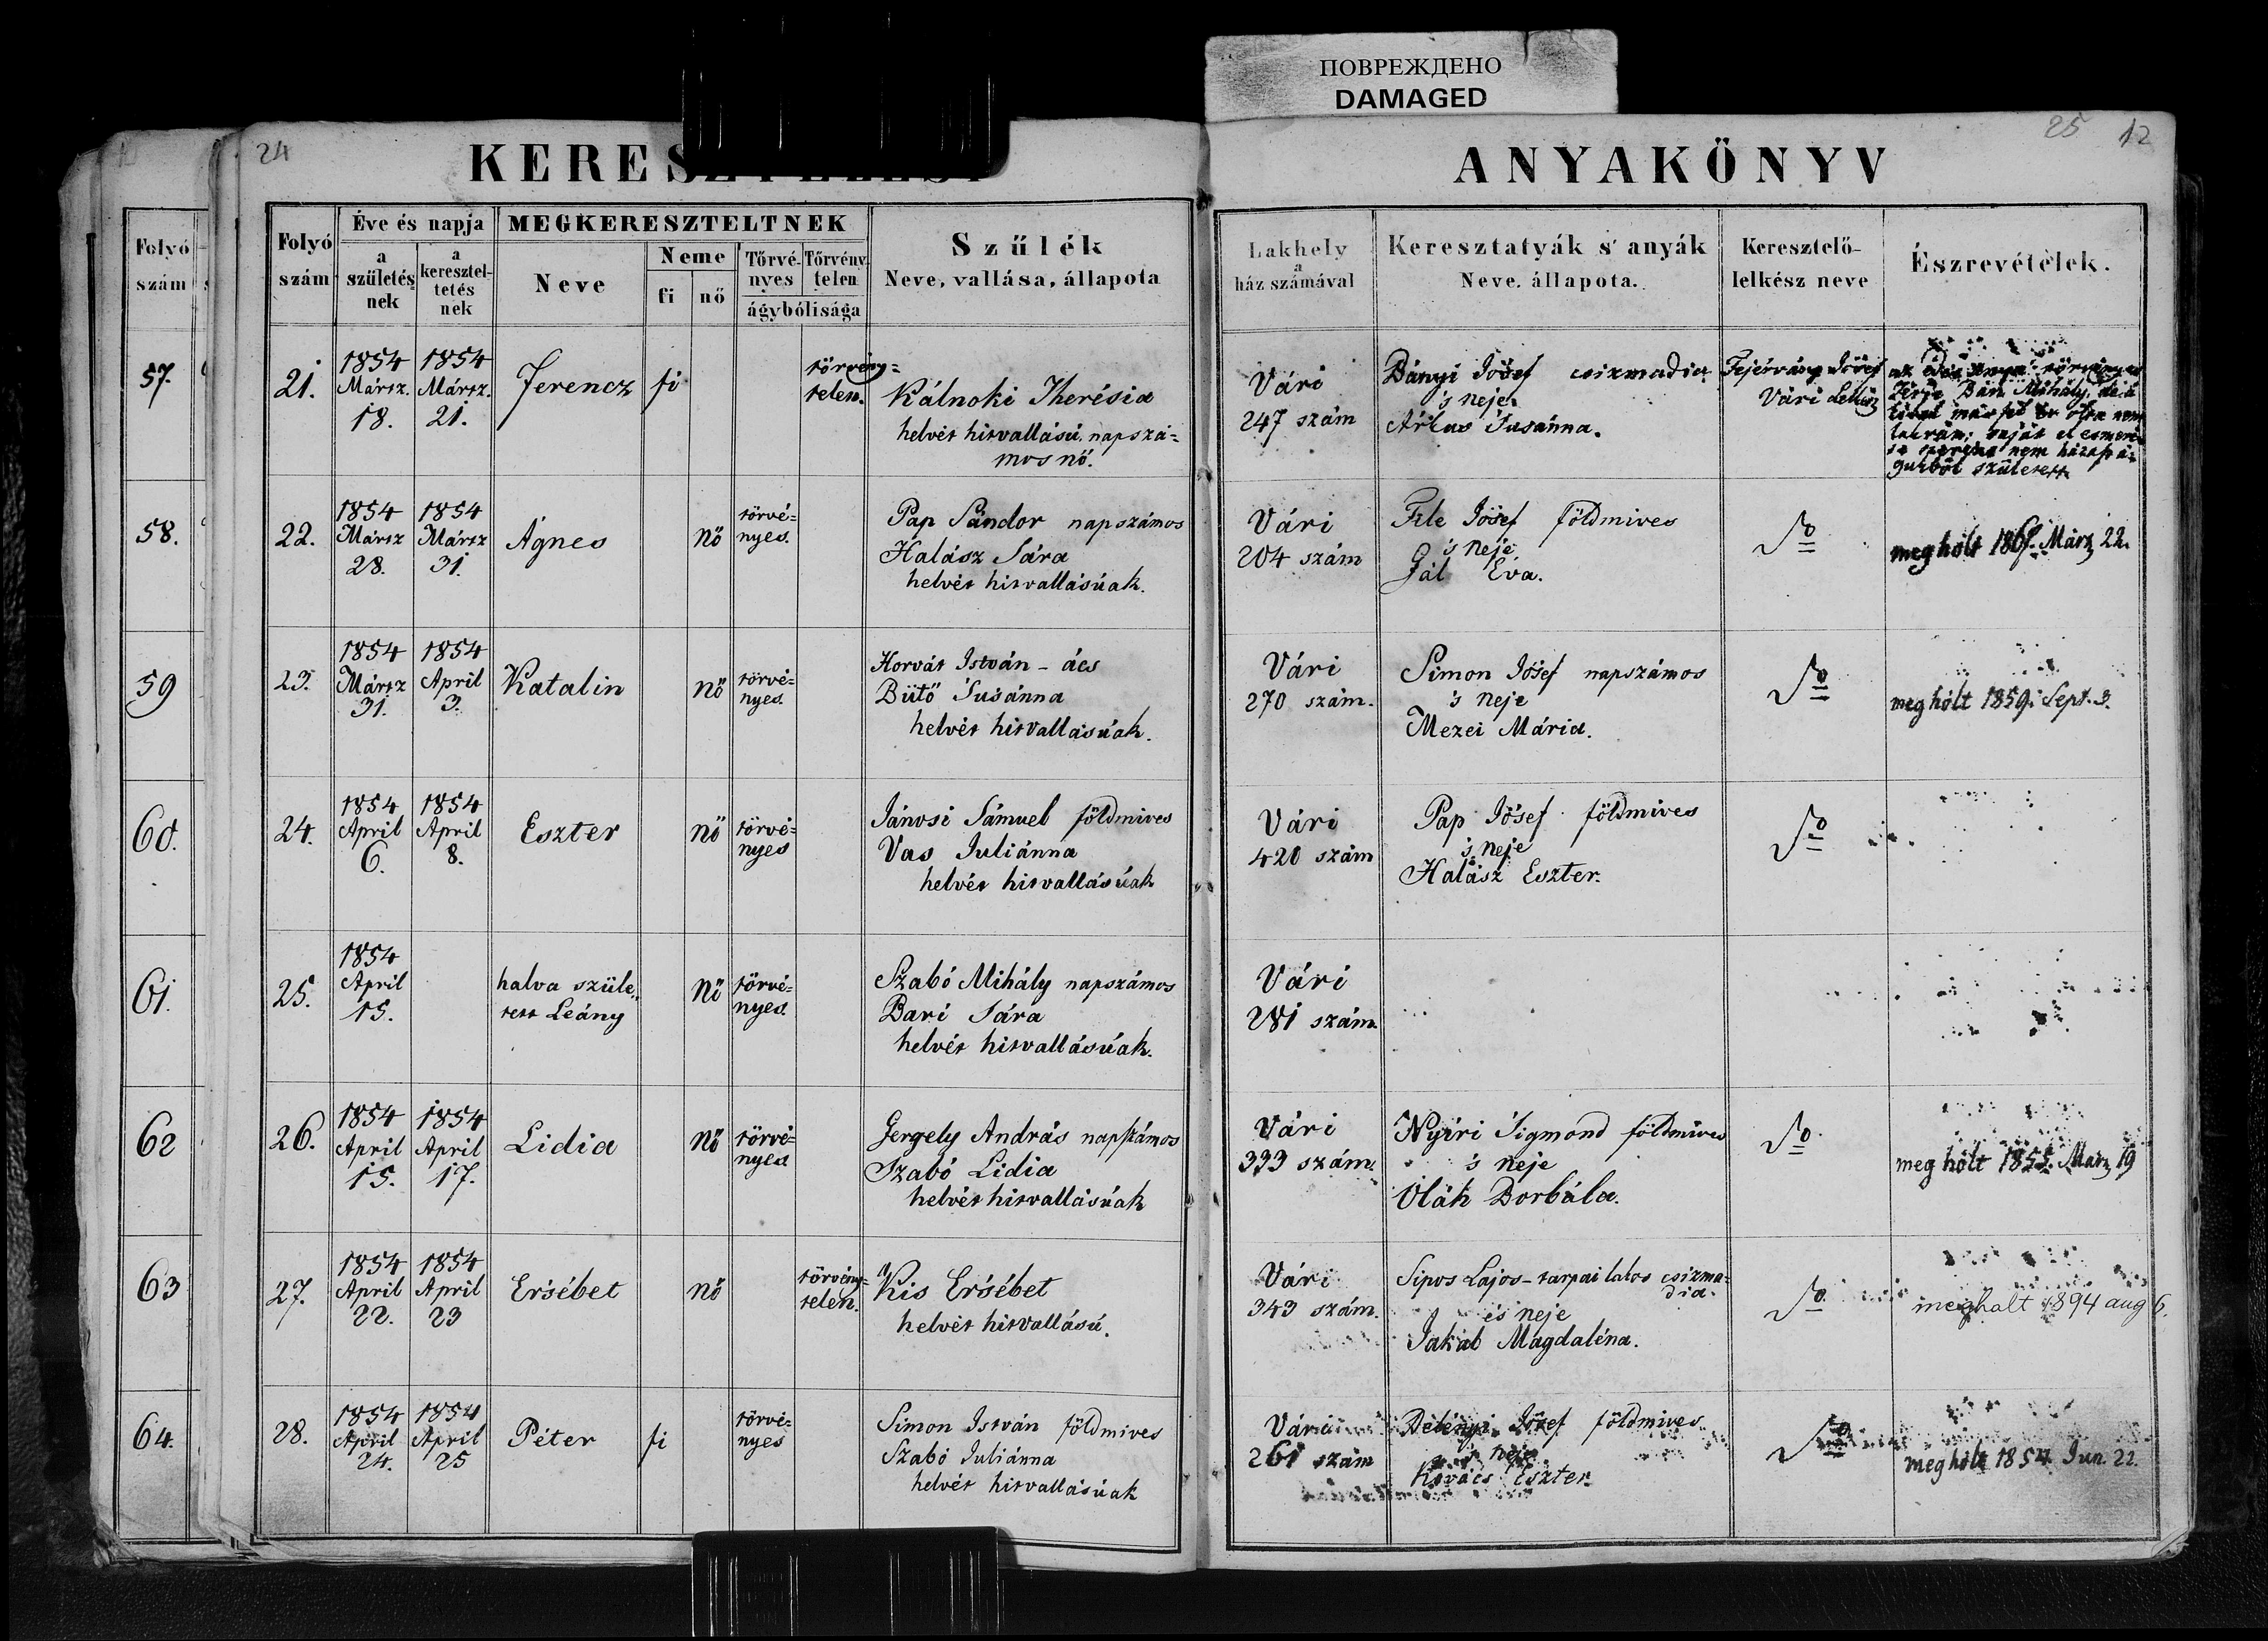 ПОВРЕЖДЕНО
DAMAGED
24
KERESZTELÉSI
ANYAKÖNYV
25 12
Folyó
szám
57.
58.
59
60.
61.
62
63
64.
Folyó
szám
Éve és napja
a
születés
nek
a
keresztel-
tetés
nek
MEGKERESZTELTNEK
Neve
Neme
fi
nő
Törvé-
nyes
Törvény
telen
ágybólisága
Szűlék
Neve, vallása, állapota
Lakhely
a
ház számával
Keresztatyák s' anyák
Neve. állapota.
Keresztelő-
lelkész neve
Észrevételek.
21.
1854
Mártz.
18.
1854
Mártz.
21.
Ferencz
fi
törvény=
telen.
Kálnoki Therésia
helvét hitvallású, napszá=
mos nő.
Vári
247 szám
Bányi Jósef csizmadia
's neje
Árkus Susánna.
Fejérváry Jósef
Vári Lelkész
az édes anya törvényes
férje Bán Mihály, de a
kivel már
saját el esmeré
se szerént nem házastá=
gukból született
22.
1854
Mártz
28.
1854
Mártz
31.
Ágnes
nő
törvé=
nyes.
Pap Sándor napszámos
Halász Sára
helvét hitvallásúak.
Vári
204 szám
File Jósef földmives
's neje
Gál Eva.
meg hólt 186 Márz 22.
23.
1854
Mártz
31.
1854
April
3.
Katalin
nő
törvé=
nyes.
Horvát István - ács
Bütő Susánna
helvét hitvallásúak.
Vári
270 szám.
Simon Jósef napszámos
's neje
Mezei Mária.
meg hólt 1859. Sept. 3.
24.
1854
April
6.
1854
April
8.
Eszter
nő
törvé=
nyes
Jánosi Sámuel földmives
Vas Juliánna
helvét hitvallásúak
Vári
420 szám
Pap Jósef földmives
's neje
Halász Eszter.
25.
1854
April
15.
halva szüle„
tett Leány
Nő
törvé=
nyes.
Szabó Mihály napszámos
Bari Sára
helvét hitvallásúak.
Vári
281 szám.
26.
1854
April
15.
1854
April
17.
Lidia
nő
törvé=
nyes
Gergely András napszámos
Szabó Lidia
helvét hitvallásúak
Vári
333 szám.
Nyiri Sigmond földmives
's neje
Oláh Borbála.
meg hólt 1855. Marz 19
27.
1854
April
22.
1854
April
23
Ersébet
nő
törvény=
telen.
Kis Ersébet
helvét hitvallású.
Vári
343 szám.
Sipos Lajos - tarpai lakos csizma=
dia.
és neje
Jakab Magdaléna.
meghalt 1894 aug 6.
28.
1854
April
24.
1854
April
25
Péter
fi
törvé=
nyes
Simon István földmives
Szabó Juliánna
helvét hitvallásúak
Vári
261 szám
Jósef földmives
's neje
Kovács Eszter.
meg hólt 1854 Jun. 22.